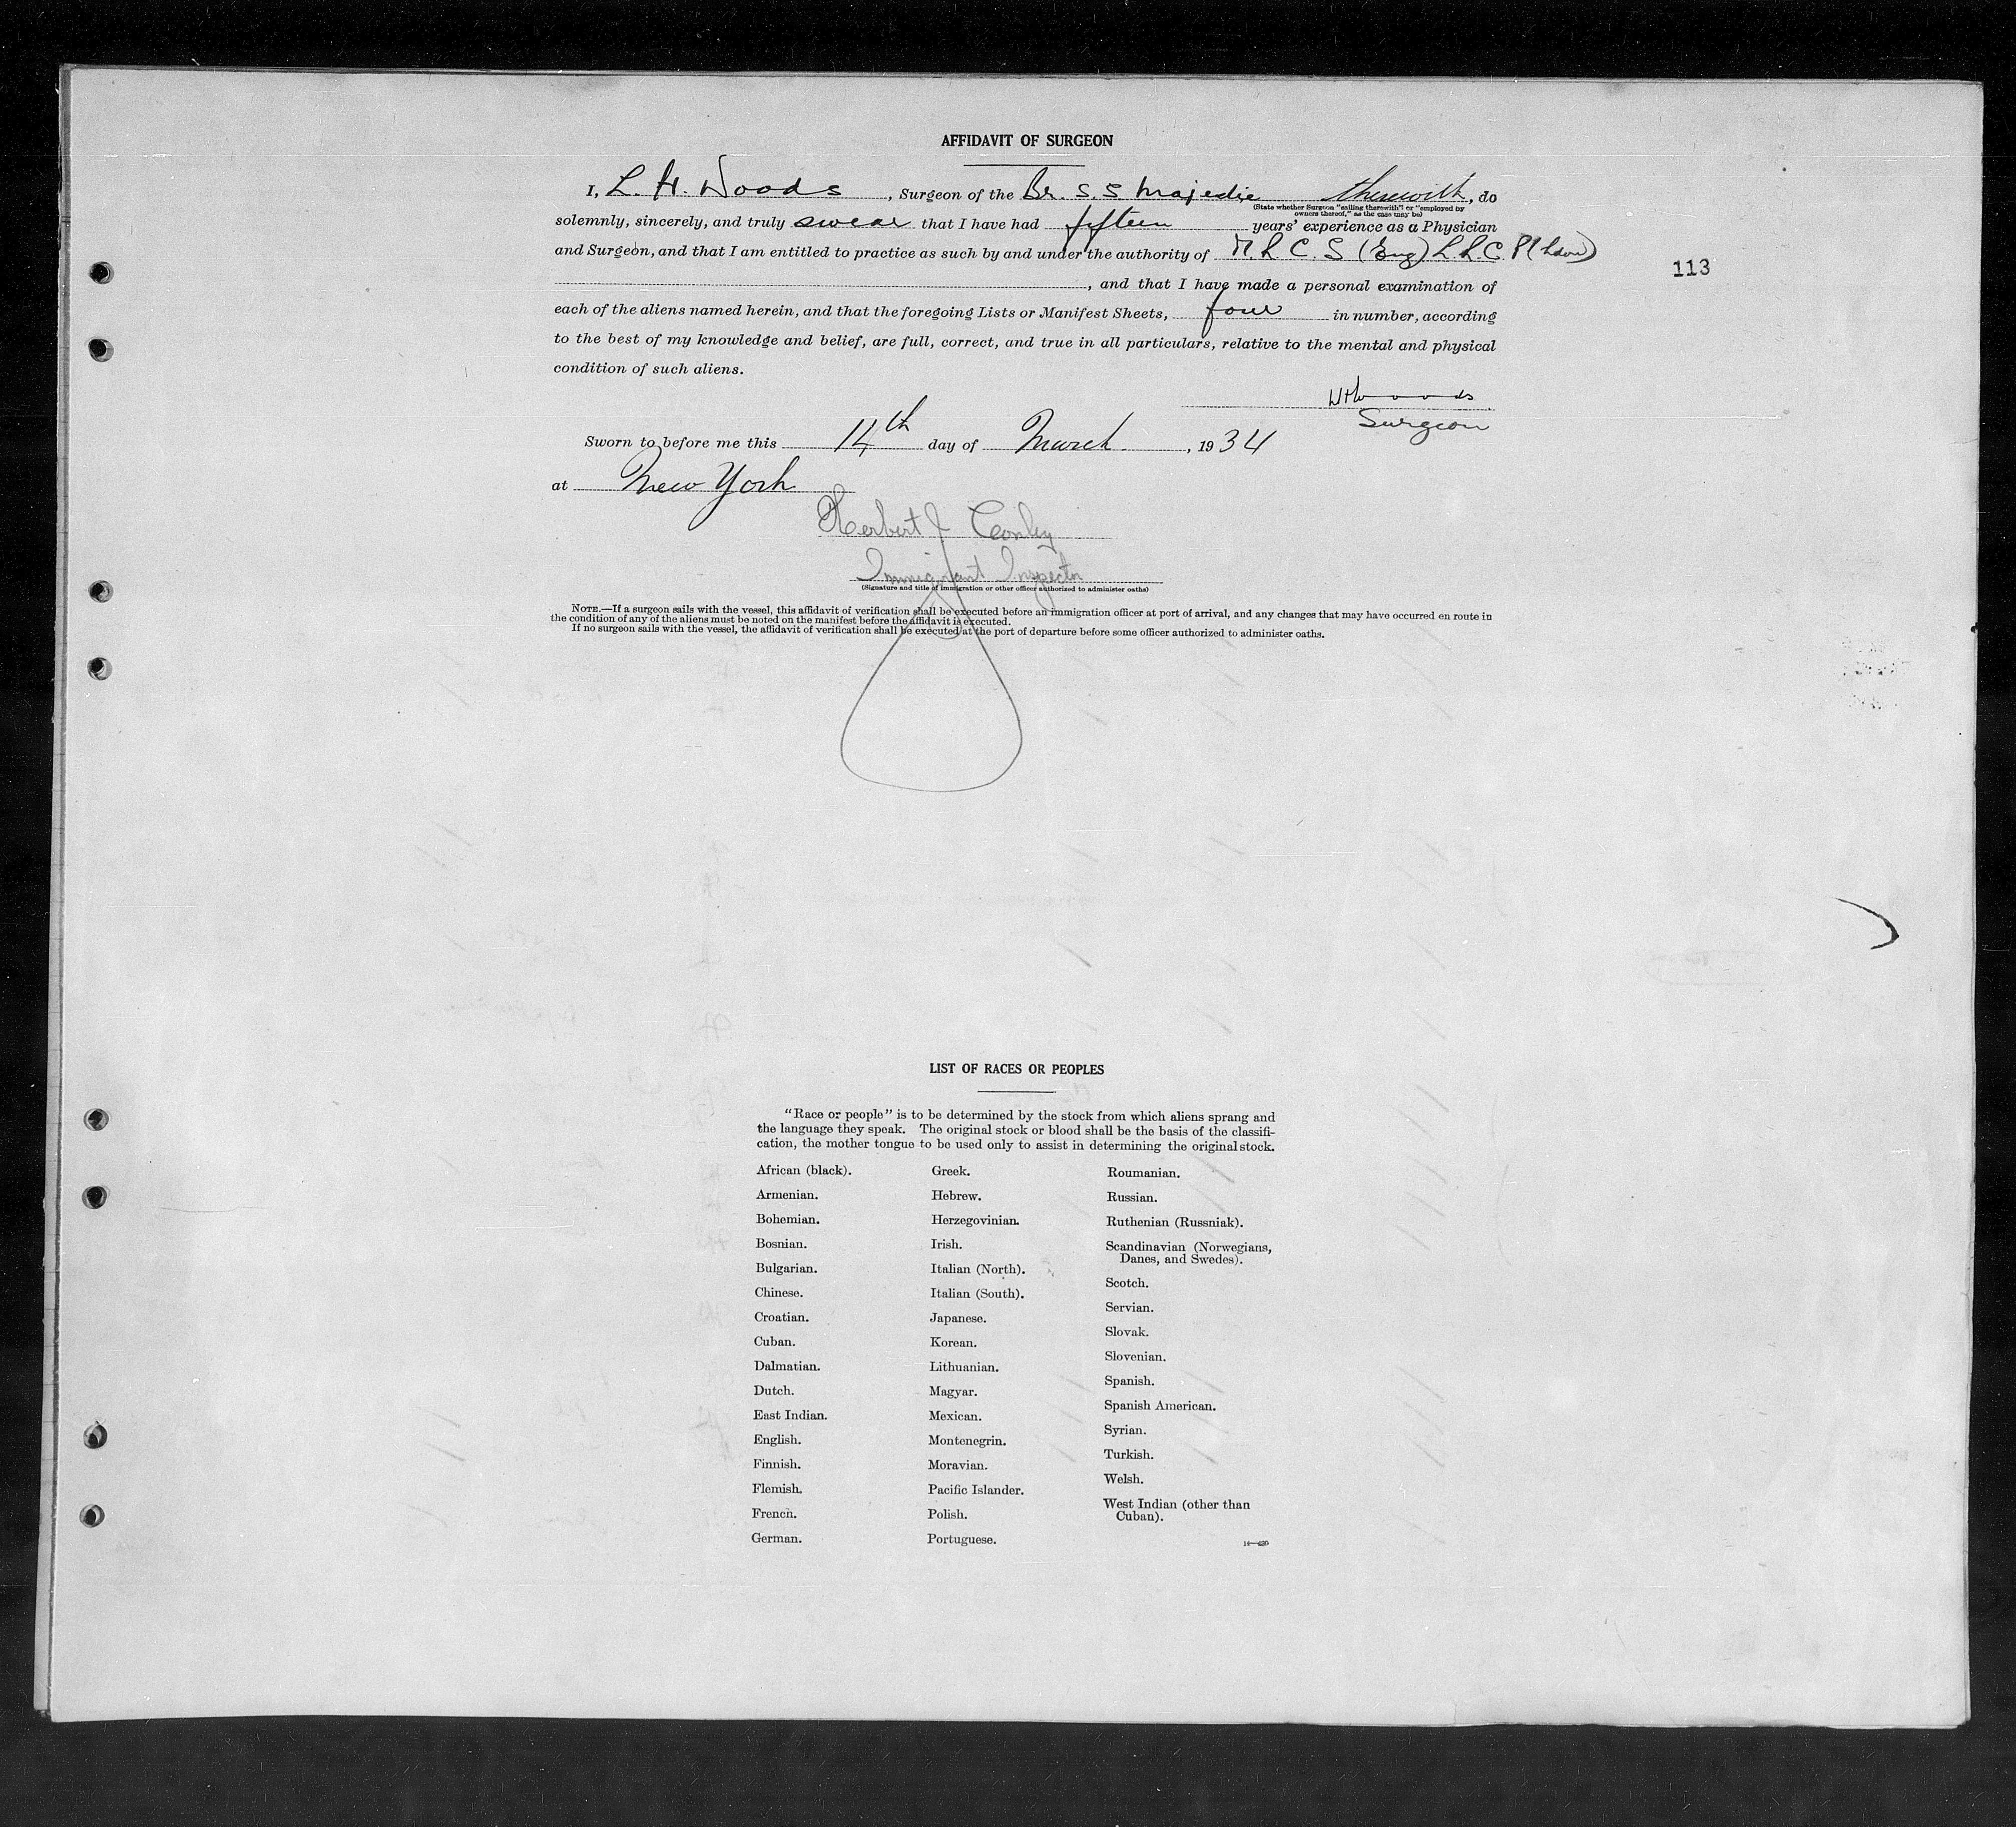 AFFIDAVIT OF SURGEON
I, L. H. Woods, Surgeon of the Br. S. S Majestic therewith, do
(State whether Surgeon "sailing therewith" or "employed by
owners thereof," as the case may be)
solemnly, sincerely, and truly swear that I have had fifteen years' experience as a Physician
and Surgeon, and that I am entitled to practice as such by and under the authority of M. R. C. S (Eng) L. R. C. P (Lon)
113
, and that I have made a personal examination of
each of the aliens named herein, and that the foregoing Lists or Manifest Sheets, four in number, according
to the best of my knowledge and belief, are full, correct, and true in all particulars, relative to the mental and physical
condition of such aliens.
Woods
Surgeon
Sworn to before me this 14th day of March, 1934
at New York
Herbert J Conley
Immigrant Inspector
(Signature and title of immigration or other officer authorized to administer oaths)
NOTE.—If a surgeon sails with the vessel, this affidavit of verification shall be executed before an immigration officer at port of arrival, and any changes that may have occurred en route in
the condition of any of the aliens must be noted on the manifest before the affidavit is executed.
If no surgeon sails with the vessel, the affidavit of verification shall be executed at the port of departure before some officer authorized to administer oaths.
LIST OF RACES OR PEOPLES
"Race or people" is to be determined by the stock from which aliens sprang and
the language they speak. The original stock or blood shall be the basis of the classifi-
cation, the mother tongue to be used only to assist in determining the original stock.
African (black).
Armenian.
Bohemian.
Bosnian.
Bulgarian.
Chinese.
Croatian.
Cuban.
Dalmatian.
Dutch.
East Indian.
English.
Finnish.
Flemish.
French.
German.
Greek.
Hebrew.
Herzegovinian.
Irish.
Italian (North).
Italian (South).
Japanese.
Korean.
Lithuanian.
Magyar.
Mexican.
Montenegrin.
Moravian.
Pacific Islander.
Polish.
Portuguese.
Roumanian.
Russian.
Ruthenian (Russniak).
Scandinavian (Norwegians,
Danes, and Swedes).
Scotch.
Servian.
Slovak.
Slovenian.
Spanish.
Spanish American.
Syrian.
Turkish.
Welsh.
West Indian (other than
Cuban).